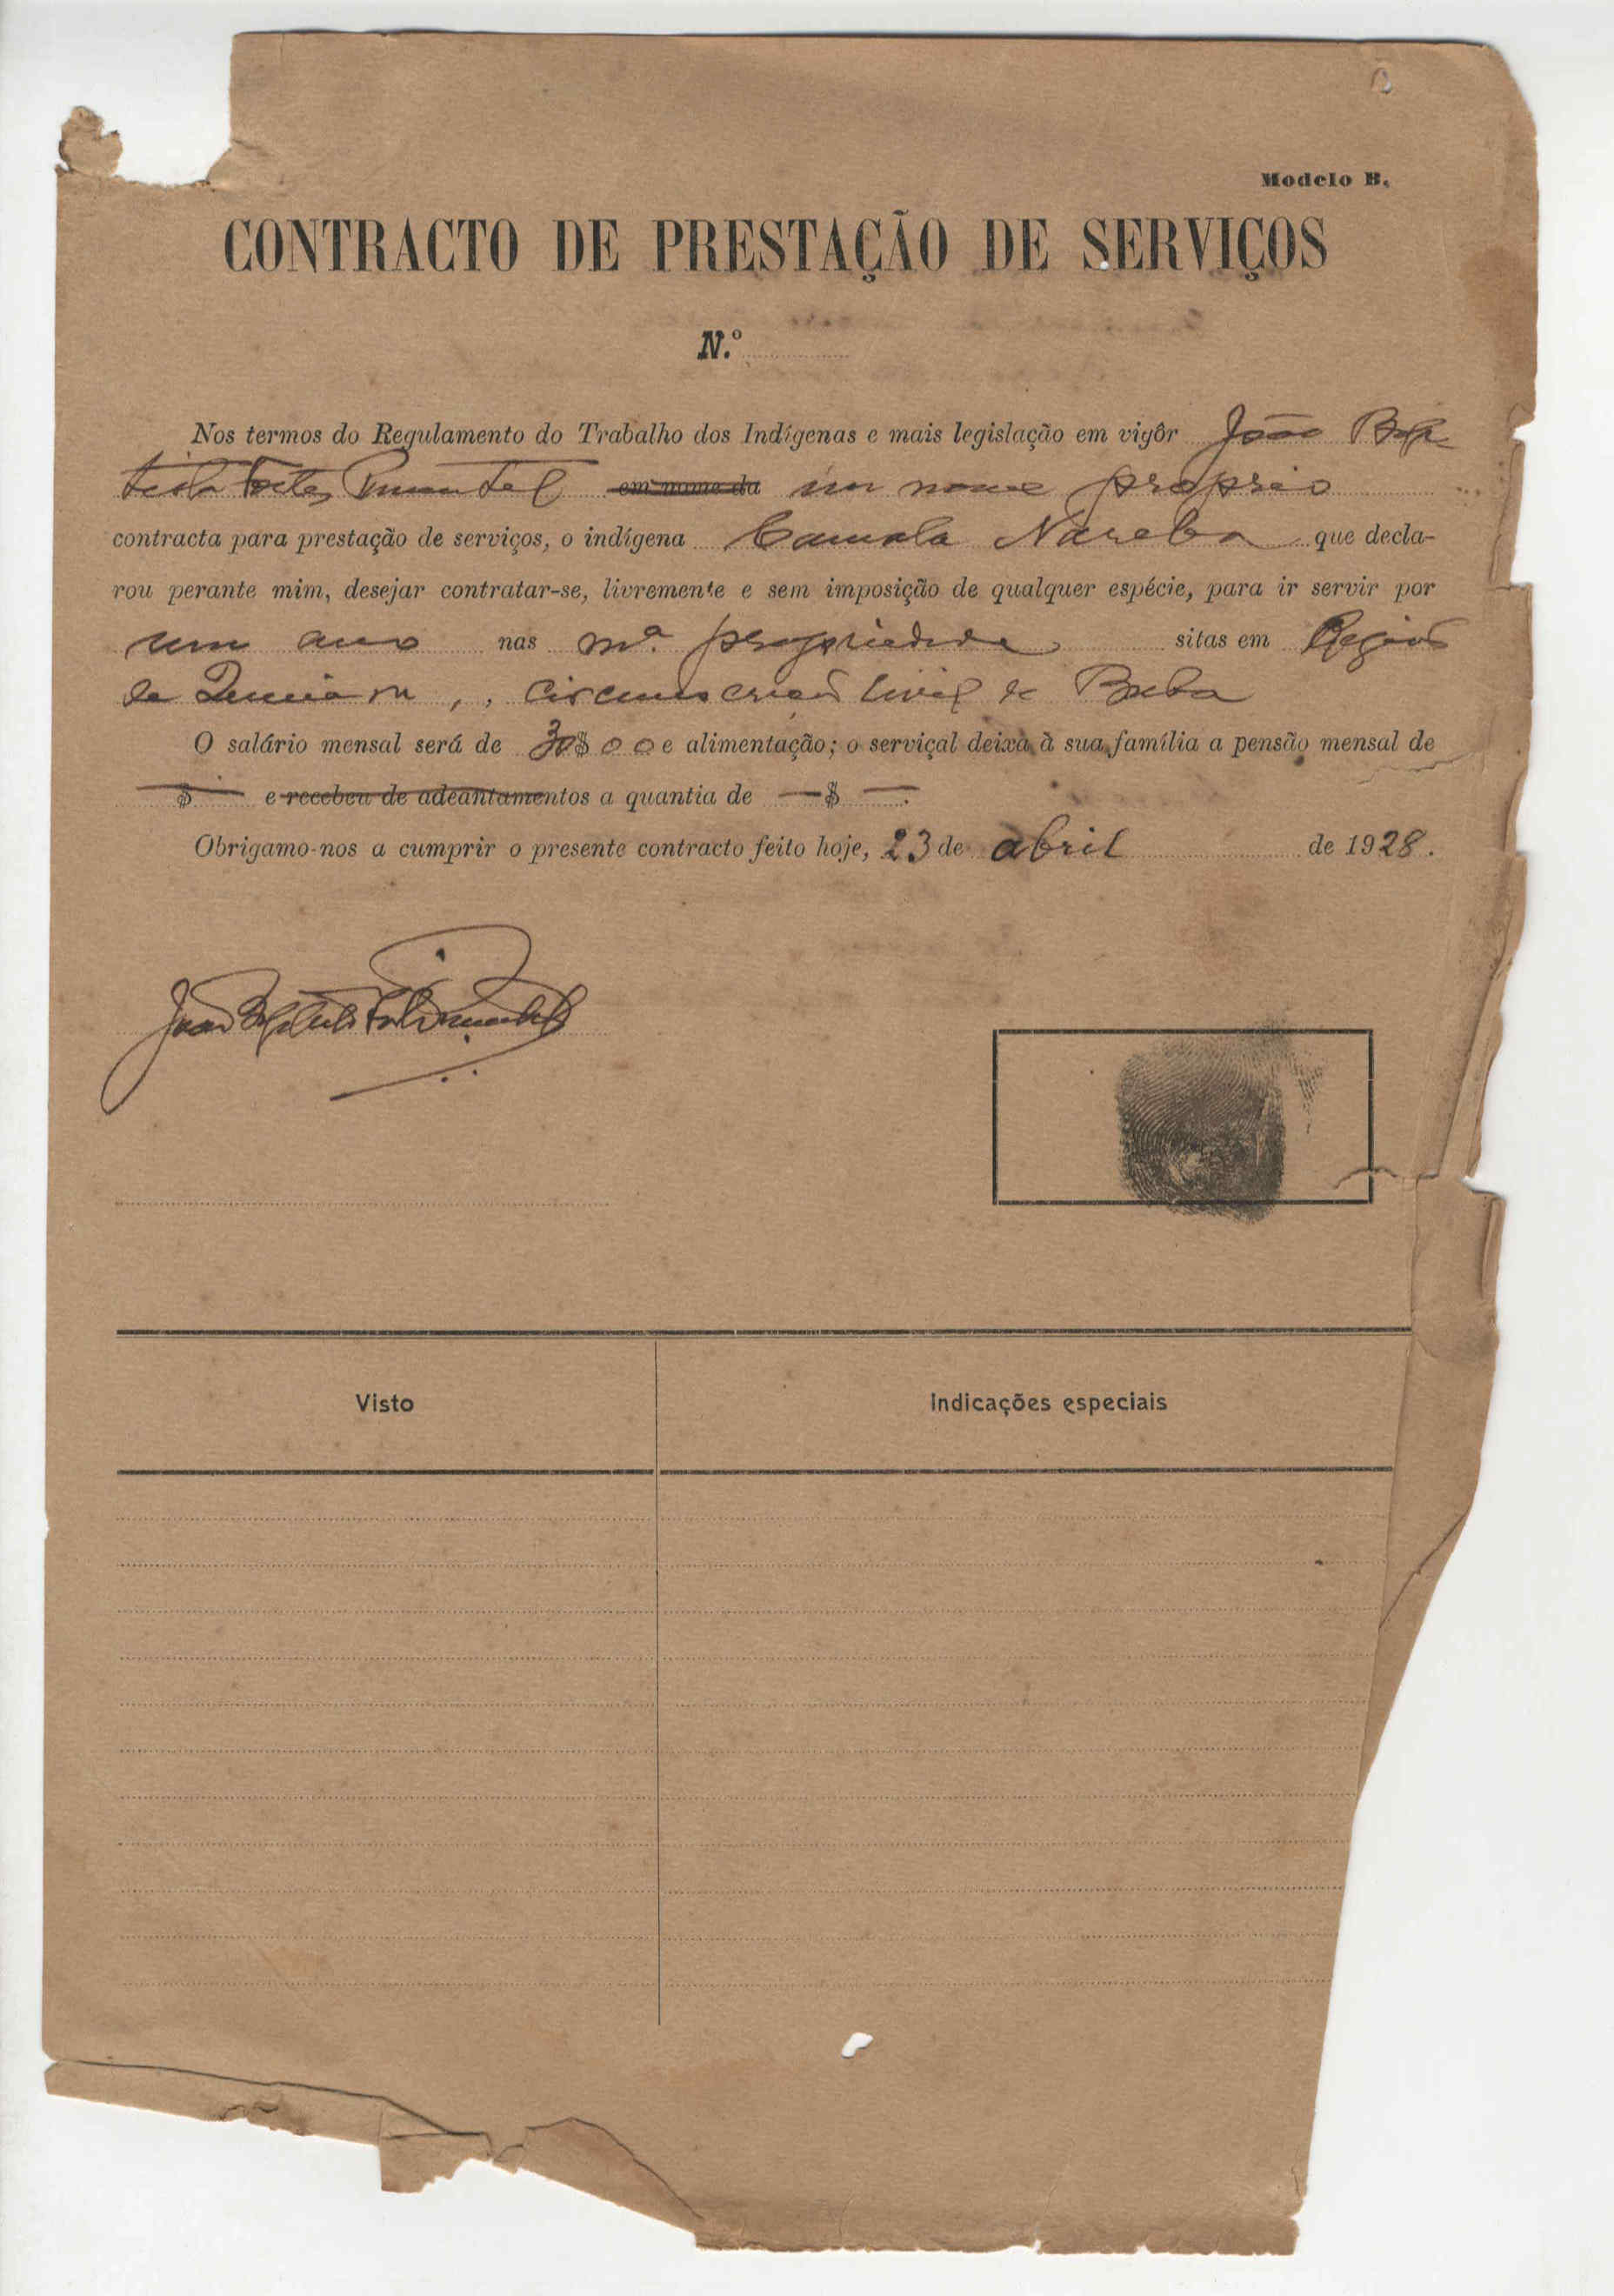 Modelo B.
CONTRACTO DE PRESTAÇÃO DE SERVIÇOS
N.º
Nos termos do Regulamento do Trabalho dos Indígenas e mais legislação em vigôr João Bap
tista Fortes Pimentel em nome da em nome proprio
contracta para prestação de serviços, o indígena Camala Nareba que decla-
rou perante mim, desejar contratar-se, livremente e sem imposição de qualquer espécie, para ir servir por
um ano nas mª propriedade sitas em Região
de , , circunscrição Civil de Buba
O salário mensal será de 30$00 e alimentação; o serviçal deixa à sua família a pensão mensal de
—$— e recebeu de adeantamentos a quantia de —$—.
Obrigamo-nos a cumprir o presente contracto feito hoje, 23 de abril de 1928.
João Baptista Fortes Pimentel
Visto
Indicações especiais